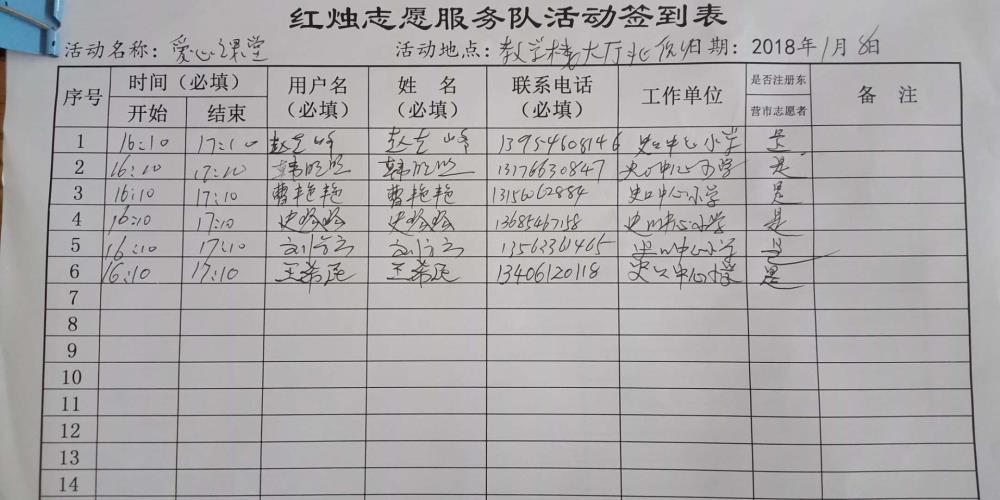 红烛志愿服务队活动签到表
活动名称：爱心课堂 活动地点：教学楼大厅北 日期：2018年1月8日
序号 时间（必填） 用户名（必填） 姓名（必填） 联系电话（必填） 工作单位 是否注册东营市志愿者 备注
开始 结束
1 16:10 17:10 赵 峰 赵 峰 13954608146 史口中心小学 是
2 16:10 17:10 韩 韩 13176630847 史口中心小学 是
3 16:10 17:10 曹艳艳 曹艳艳 史口中心小学 是
4 16:10 17:10 史 史 13685467158 史口中心小学 是
5 16:10 17:10 刘 刘 史口中心小学 是
6 16:10 17:10 王希 王希 13406120118 史口中心小学 是
7
8
9
10
11
12
13
14